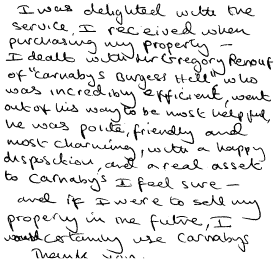 I was delighted with the
service, I received when
purchasing my property –
I dealt with Mr Gregory Renouf
of "Carnabys Burgess Hill" who
was incredibly efficient, went
out of his way to be most helpful,
he was polite, friendly and
most charming, with a happy
disposition, and a real asset
to Carnabys I feel sure –
and if I were to sell my
property in the future, I
would certainly use Carnabys
Thank you